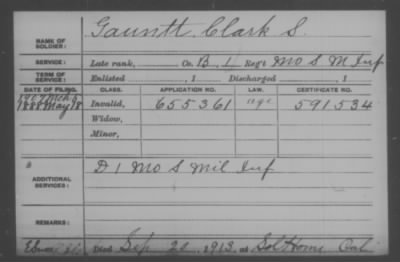 NAME OF SOLDIER: Gauntt, Clark S.
SERVICE: Late rank, Co. B. 1 Reg't Mo S M Inf
TERM OF SERVICE: Enlisted , 1 Discharged , 1
DATE OF FILING. CLASS. APPLICATION NO. LAW. CERTIFICATE NO.
1888 May 18 Invalid, 655361 age 591534
Widow,
Minor,
ADDITIONAL SERVICES: D 1 Mo S Mil Inf
REMARKS:
Died Sep. 20, 1913, at Sol Home Cal